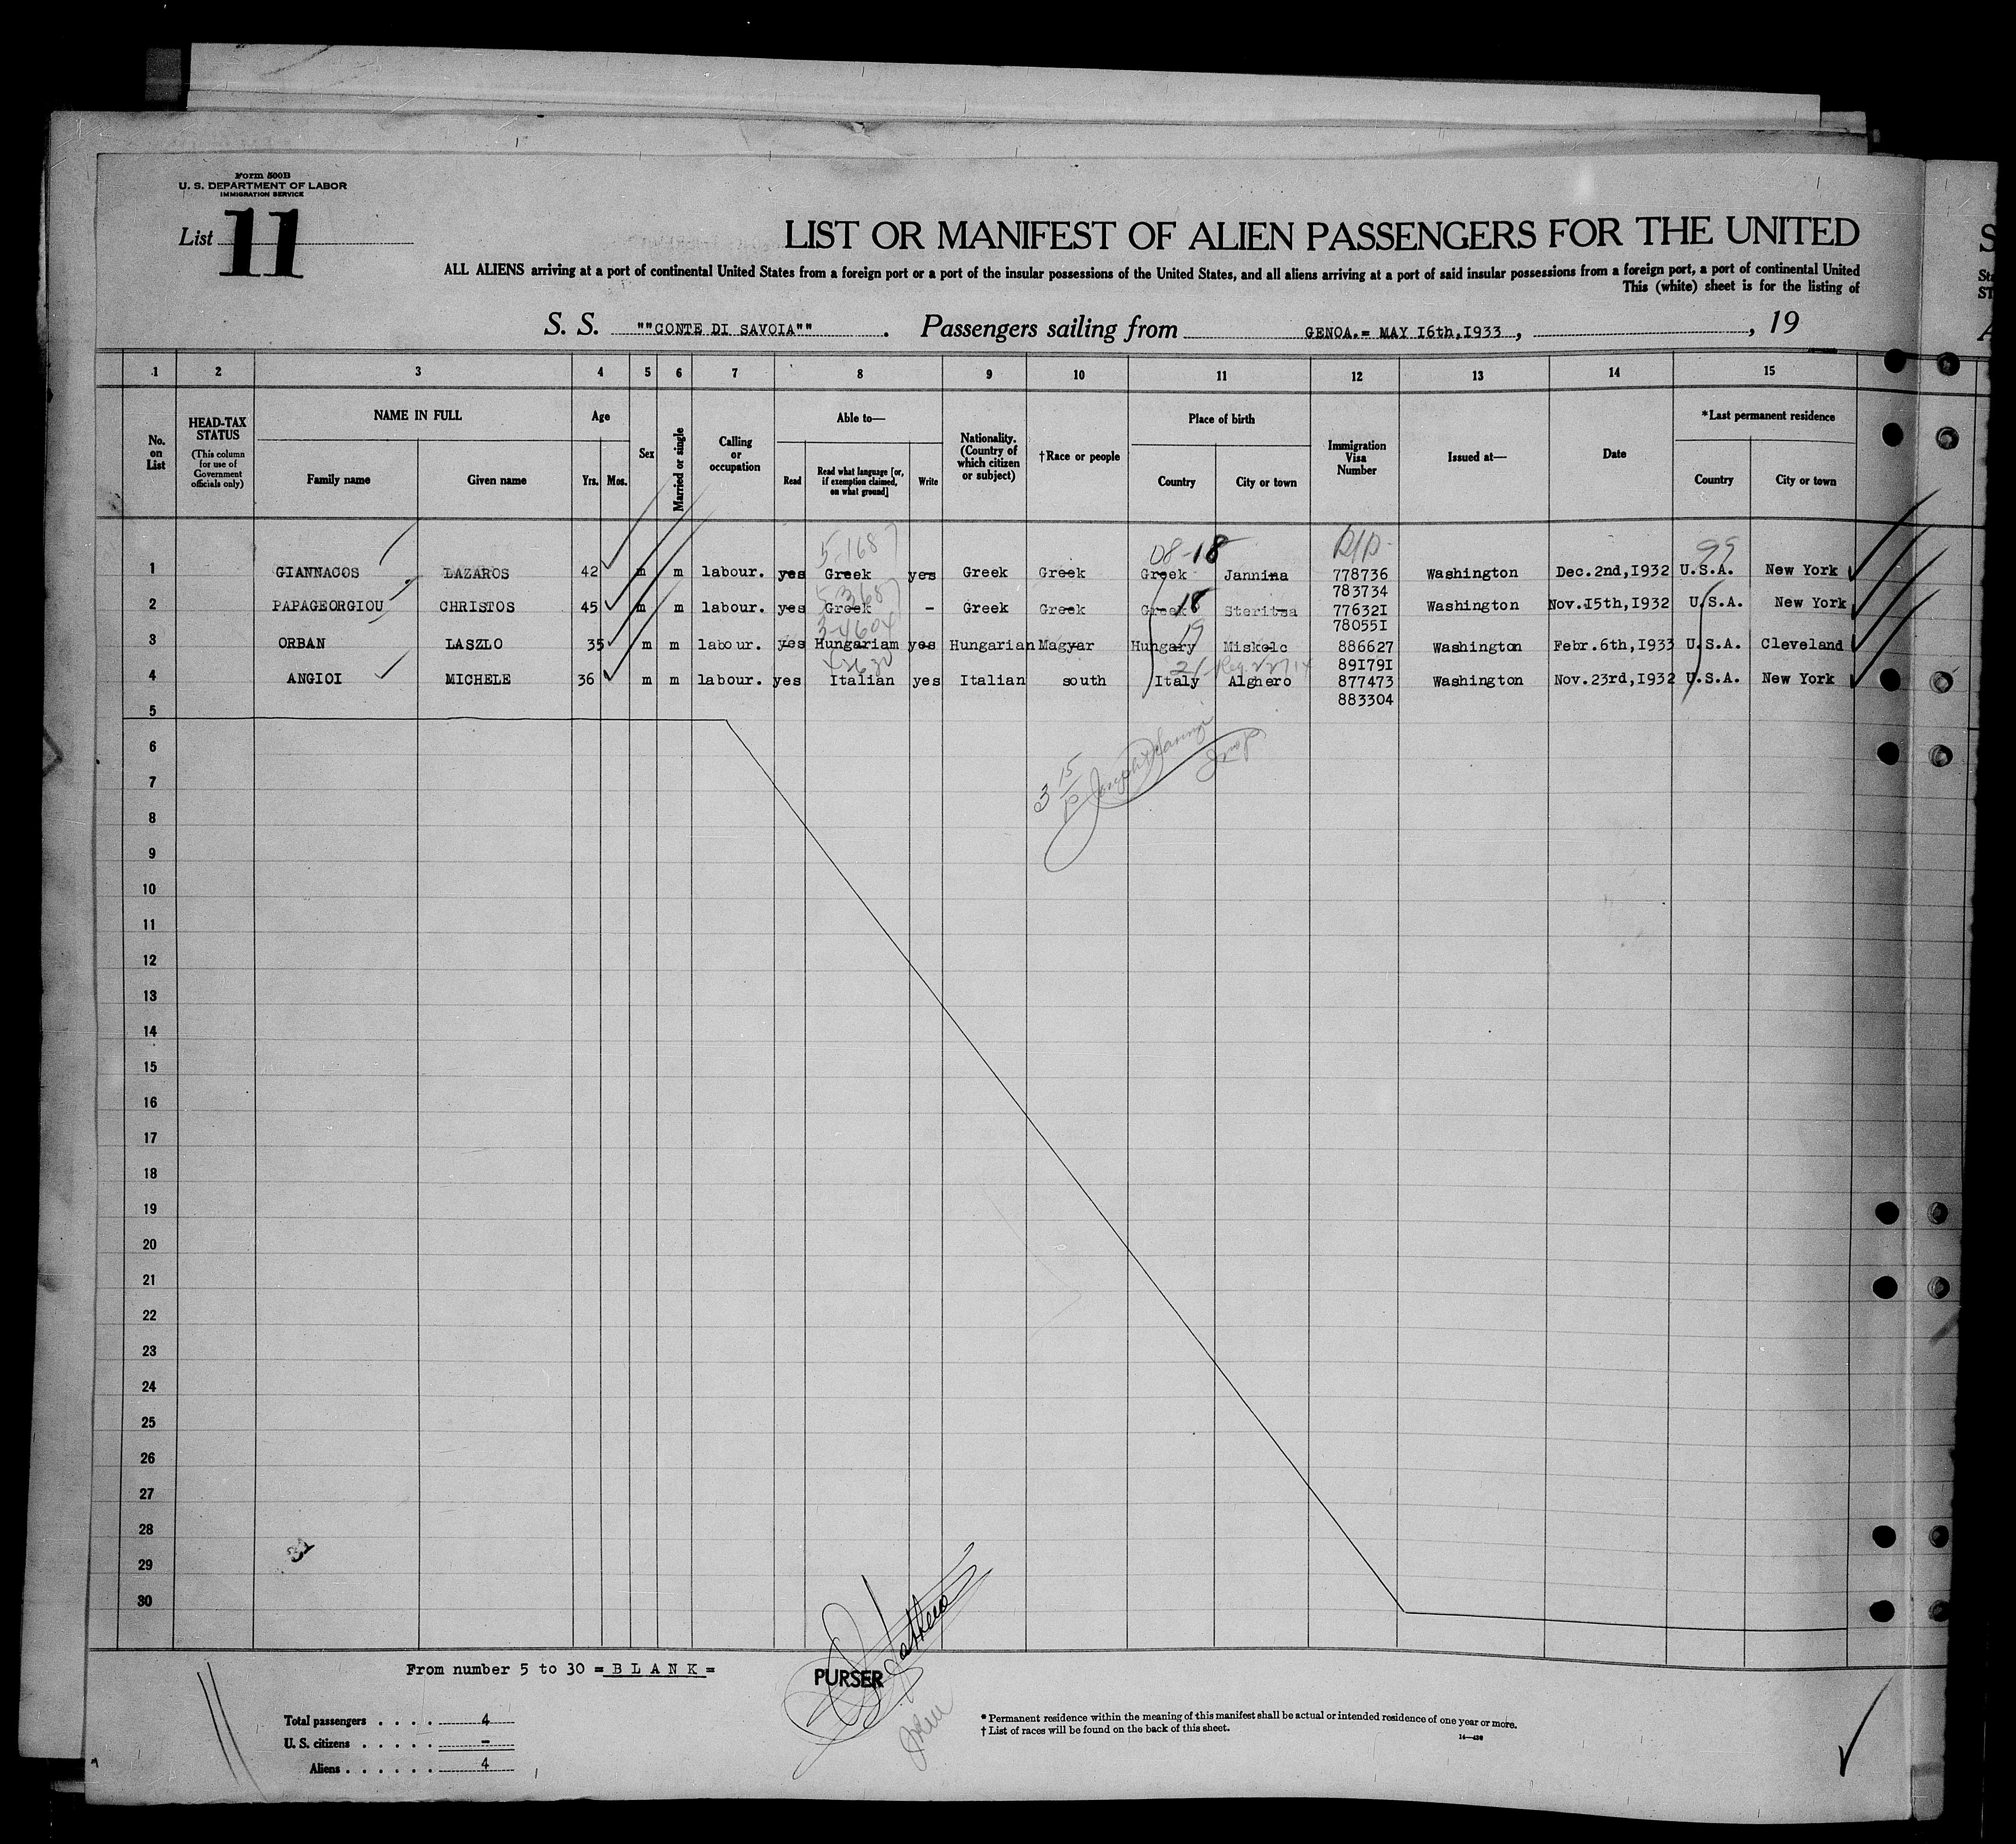 Form 500B
U. S. DEPARTMENT OF LABOR
IMMIGRATION SERVICE
List 11
LIST OR MANIFEST OF ALIEN PASSENGERS FOR THE UNITED
ALL ALIENS arriving at a port of continental United States from a foreign port or a port of the insular possessions of the United States, and all aliens arriving at a port of said insular possessions from a foreign port, a port of continental United
This (white) sheet is for the listing of
S. S. ""CONTE DI SAVOIA"" . Passengers sailing from GENOA.= MAY I6th,I933 , , 19
1 2 3 4 5 6 7 8 9 10 11 12 13 14 15
No. on List
HEAD-TAX STATUS
(This column for use of Government officials only)
NAME IN FULL
Family name Given name
Age
Yrs. Mos.
Sex
Married or single
Calling or occupation
Able to—
Read Read what language [or, if exemption claimed, on what ground] Write
Nationality. (Country of which citizen or subject)
†Race or people
Place of birth
Country City or town
Immigration Visa Number
Issued at—
Date
*Last permanent residence
Country City or town
5-1687 08-18 99
1 GIANNACOS LAZAROS 42 m m labour. yes Greek yes Greek Greek Greek Jannina 778736 Washington Dec.2nd,I932 U.S.A. New York
783734
2 PAPAGEORGIOU CHRISTOS 45 m m labour. yes Greek – Greek Greek Greek 18 Steritsa 77632I Washington Nov.I5th,I932 U.S.A. New York
78055I
3 ORBAN LASZLO 35 m m labour. yes Hungariam yes Hungarian Magyar Hungary 19 Miskolc 886627 Washington Febr.6th,I933 U.S.A. Cleveland
89I79I
4 ANGIOI MICHELE 36 m m labour. yes Italian yes Italian south Italy 21 Alghero 877473 Washington Nov.23rd,I932 U.S.A. New York
883304
5
6
7
8
9
10
11
12
13
14
15
16
17
18
19
20
21
22
23
24
25
26
27
28
29
30
From number 5 to 30 =B L A N K=
PURSER
Total passengers . . . . 4
U. S. citizens . . . . . –
Aliens . . . . . . 4
* Permanent residence within the meaning of this manifest shall be actual or intended residence of one year or more.
† List of races will be found on the back of this sheet.